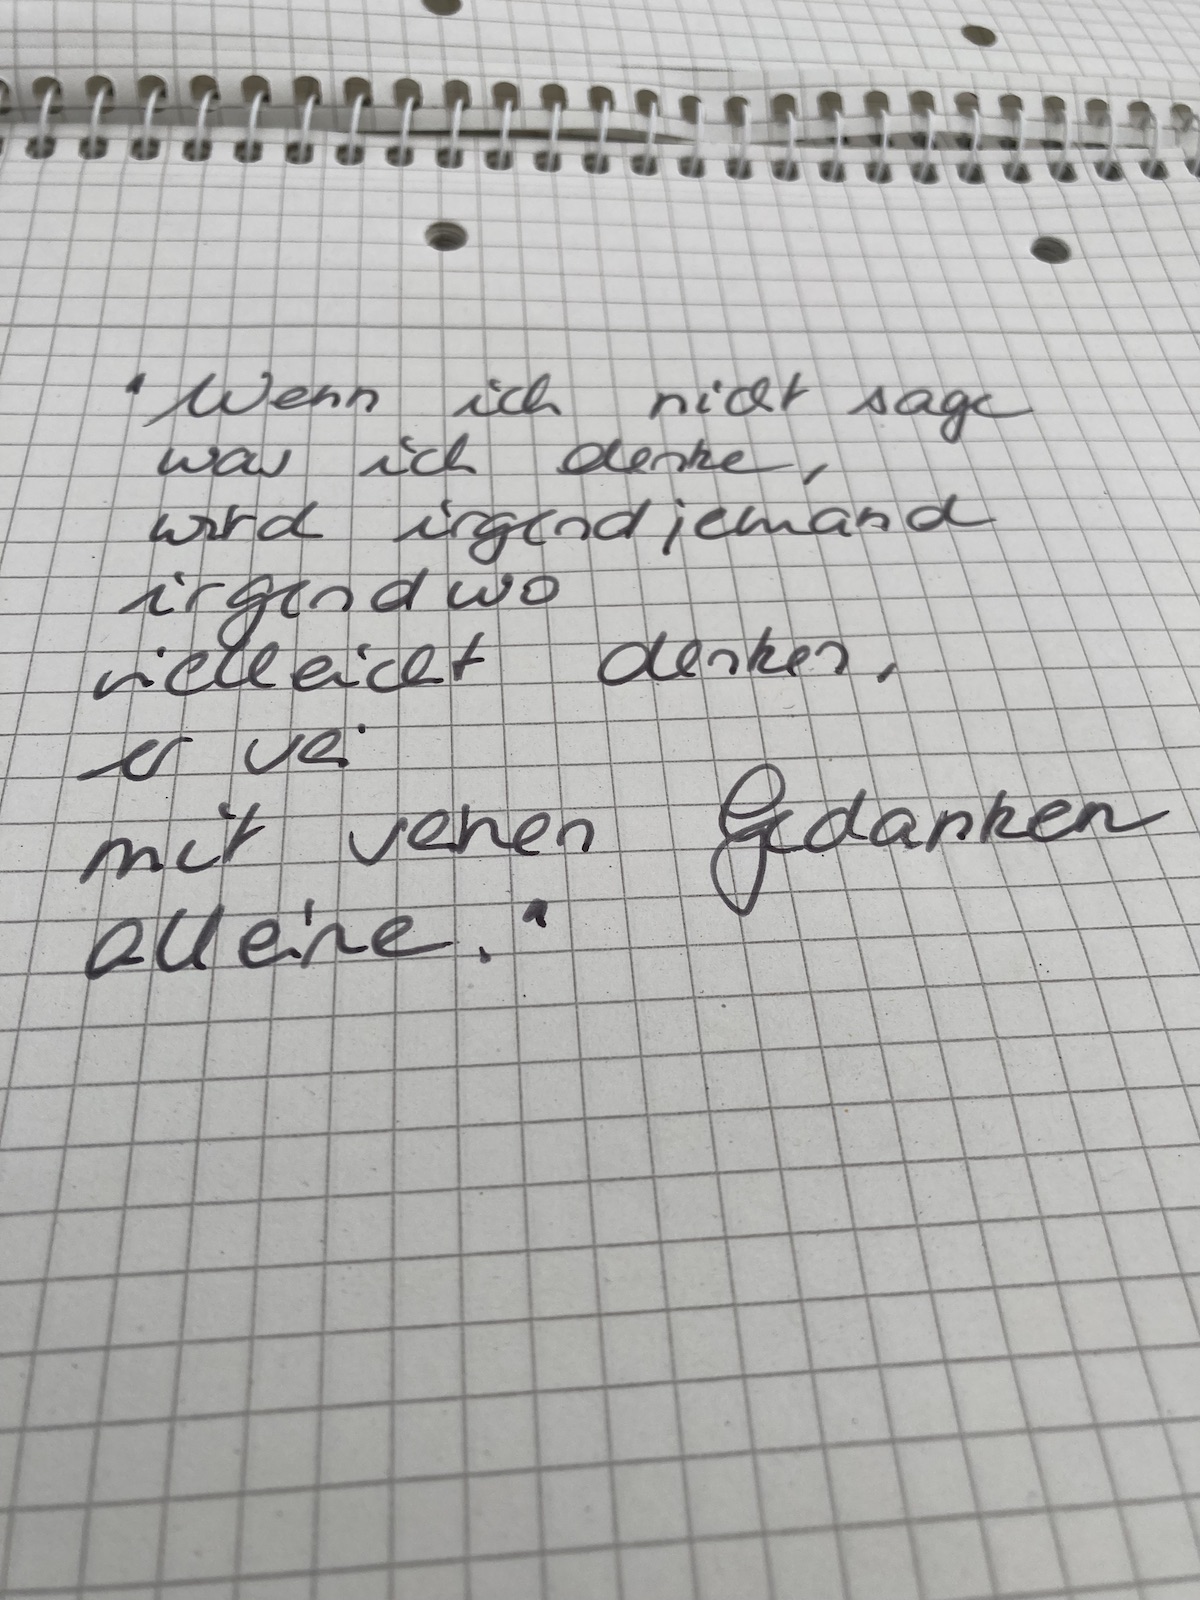 "Wenn ich nicht sage
was ich denke,
wird irgendjemand
irgendwo
vielleicht denken,
er sei
mit seinen Gedanken
alleine."